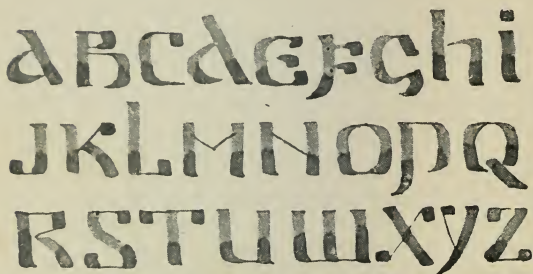 aBCdEFGhi
JKLMNOPQ
RSTUWXYZ